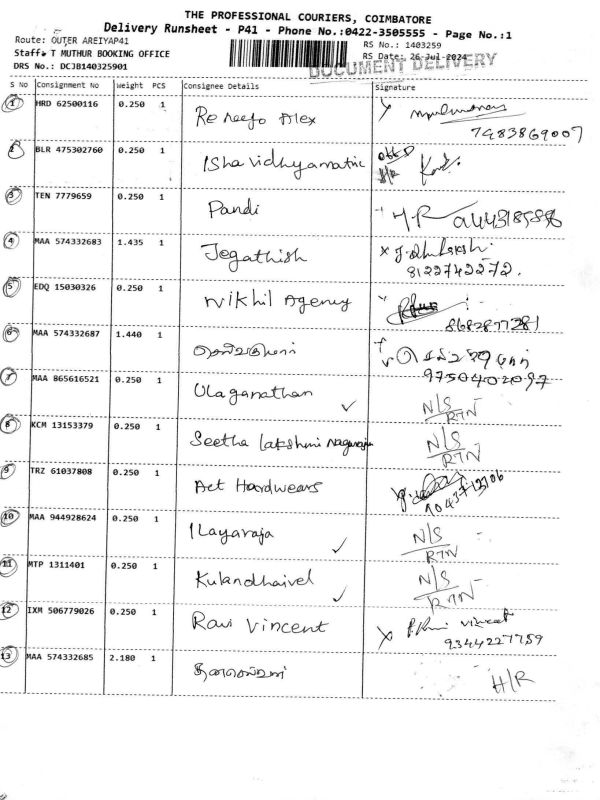 THE PROFESSIONAL COURIERS, COIMBATORE
Delivery Runsheet - P41 - Phone No.:0422-3505555 - Page No.:1
Route: OUTER AREIYAP41
RS No.: 1403259
Staff: T MUTHUR BOOKING OFFICE
RS Date: 26-Jul-2024
DRS No.: DCJB140325901
DOCUMENT DELIVERY
S No Consignment No Weight PCS Consignee Details Signature
1 HRD 62500116 0.250 1 Alex
7483869007
2 BLR 475302760 0.250 1 Isha H/R
3 TEN 7779659 0.250 1 Pandi H/R
4 MAA 574332683 1.435 1 Jegathish
8122742272.
5 EDQ 15030326 0.250 1 Nikhil Agency
8682877281
6 MAA 574332687 1.440 1
9750402097
7 MAA 865616521 0.250 1 Ulaganathan ✓ N/S
RTN
8 KCM 13153379 0.250 1 Seetha Lakshmi Nagaraja N/S
RTN
9 TRZ 61037808 0.250 1 Act Hardwears
10 MAA 944928624 0.250 1 Ilayaraja ✓ N/S
RTN
11 MTP 1311401 0.250 1 Kulandhaivel ✓ N/S
RTN
12 IXM 506779026 0.250 1 Ravi Vincent
9344227759
13 MAA 574332685 2.180 1 H/R